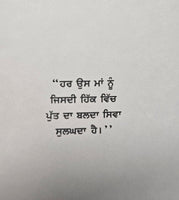 “ਹਰ ਉਸ ਮਾਂ ਨੂੰ
ਜਿਸਦੀ ਹਿੱਕ ਵਿੱਚ
ਪੁੱਤ ਦਾ ਬਲਦਾ ਸਿਵਾ
ਸੁਲਘਦਾ ਹੈ।’’